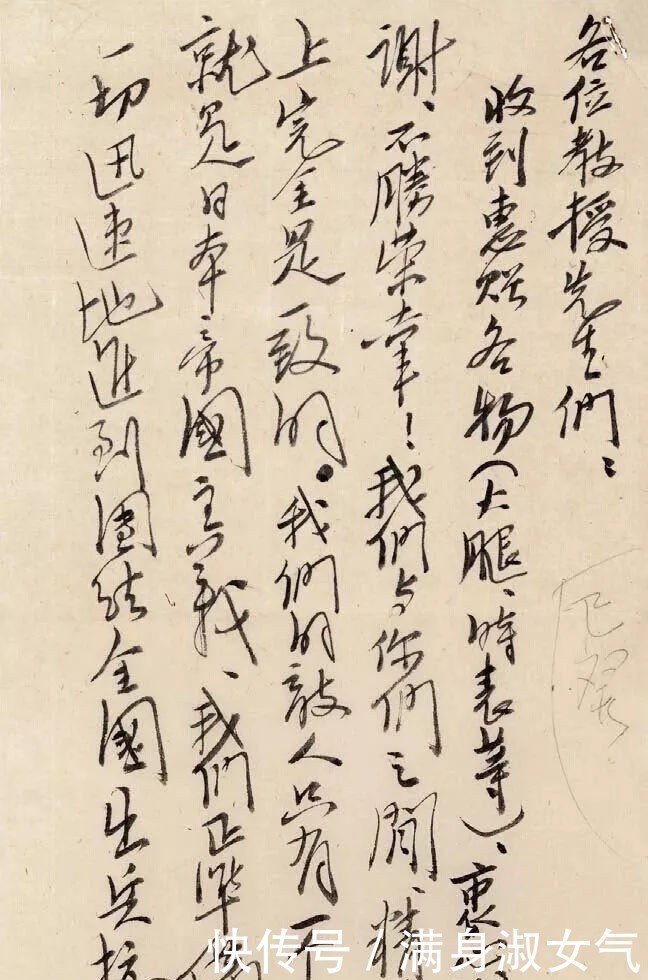 各位教授先生們：
收到惠贈各物（火腿、時表等）、衷心
謝、不勝榮幸！我們与你們之間、精
上完全是一致的。我們的敵人只有一个
就是日本帝國主義、我們正準備
一切迅速地進到團結全國出兵抗
已裱
快传号 / 满身淑女气